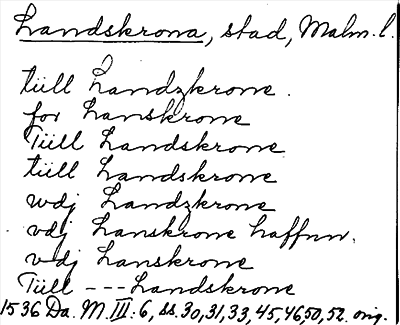 Landskrona, stad, Malm. l.
tüll Landzkrone.
for Lanskrone
Tüll Landskrone
tüll Landskrone
wdj Landzkrone
vdj Lanskrone haffnn.
vdj Lanskrone
Tüll --- Landskrone
1536 Da. M. III: 6, ss. 30, 31, 33, 45, 46, 50, 52. orig.